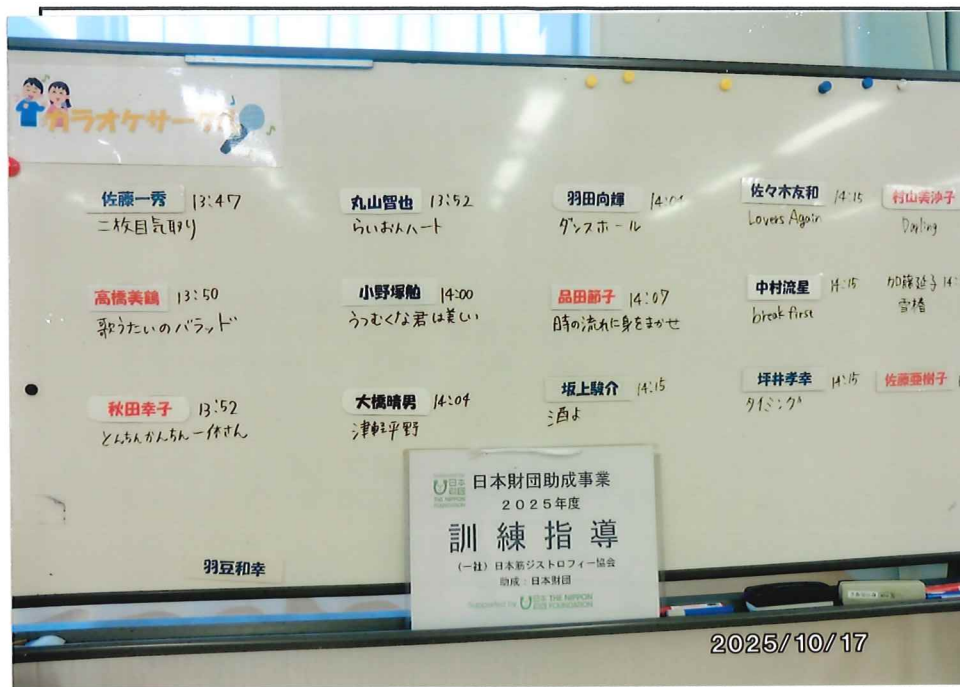 カラオケサークル
佐藤一秀 13:47
二枚目気取り
高橋美鶴 13:50
歌うたいのバラッド
秋田幸子 13:52
とんちんかんちん一休さん
丸山智也 13:52
らいおんハート
小野塚勉 14:00
うつむくな君は美しい
大橋晴男 14:04
津軽平野
羽田向輝
ダンスホール
品田節子 14:07
時の流れに身をまかせ
坂上駿介 14:15
酒よ
佐々木友和 14:15
Lovers Again
中村流星 14:15
break first
坪井孝幸 14:15
タイミング
村山美沙子
Darling
加藤延子 14:
雪椿
佐藤亜樹子
羽豆和幸
日本財団 THE NIPPON FOUNDATION
日本財団助成事業
2025年度
訓練指導
(一社)日本筋ジストロフィー協会
助成:日本財団
Supported by 日本財団 THE NIPPON FOUNDATION
2025/10/17